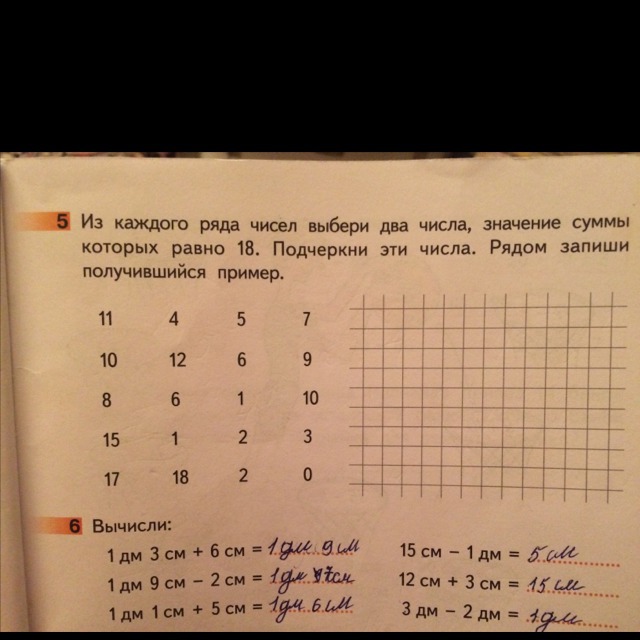 5 Из каждого ряда чисел выбери два числа, значение суммы
которых равно 18. Подчеркни эти числа. Рядом запиши
получившийся пример.
11 4 5 7
10 12 6 9
8 6 1 10
15 1 2 3
17 18 2 0
6 Вычисли:
1 дм 3 см + 6 см = 1 дм 9 см 15 см − 1 дм = 5 см
1 дм 9 см − 2 см = 1 дм 7 см 12 см + 3 см = 15 см
1 дм 1 см + 5 см = 1 дм 6 см 3 дм − 2 дм = 1 дм